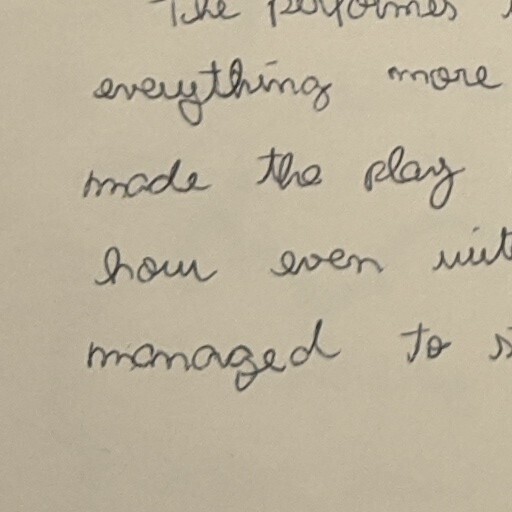 The performes
everything more
made the play
how even wit
managed to s